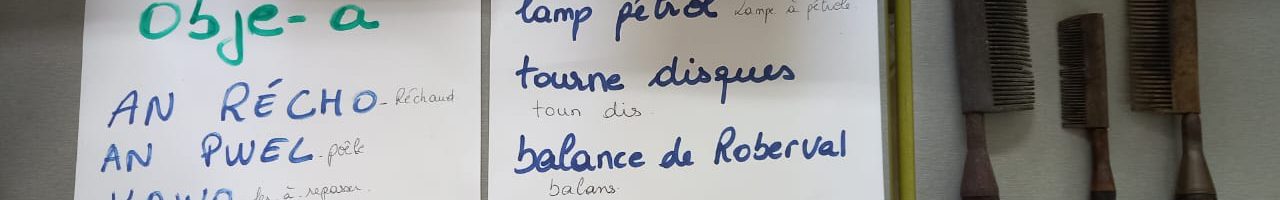 Obje-a
AN RÉCHO - Réchaud
AN PWEL - poêle
fer à repasser.
lamp pétrol Lampe à pétrole.
tourne disques
toun dis
balance de Roberval
balans